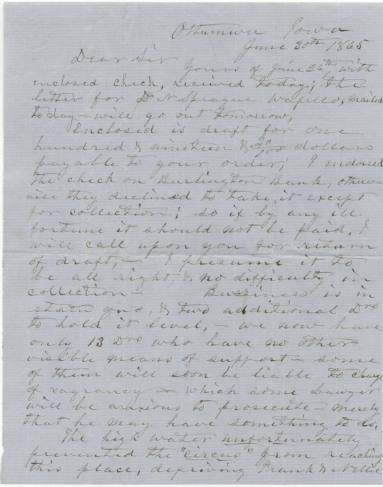 Ottumwa Iowa
June 30th 1865
Dear Sir
Yours of June 26th with
enclosed check, received today; the
letter for D. N. Sprague Wapello, mailed
to day – will go out tomorrow,
Enclosed is draft for one
hundred & nineteen & dollars
payable to your order; I endorsed
the check on Burlington Bank, other
wise they declined to take it except
for collection; so if by any ill
fortune it should not be paid, I
will call upon you for return
of draft, – I presume it to
be all right & no difficulty in
collection – Bussiness is in
statu quo, & two additional Drs
to hold it level, – we now have
only 13 Drs who have no other
visible means of support – some
of them will soon be liable to charge
of vagrancy – which some lawyer
will be anxious to prosecute – merely
that he may have something to do,
The high water unfortunately
prevented the "circus" from reaching
this place, depriving Frank & Nellie